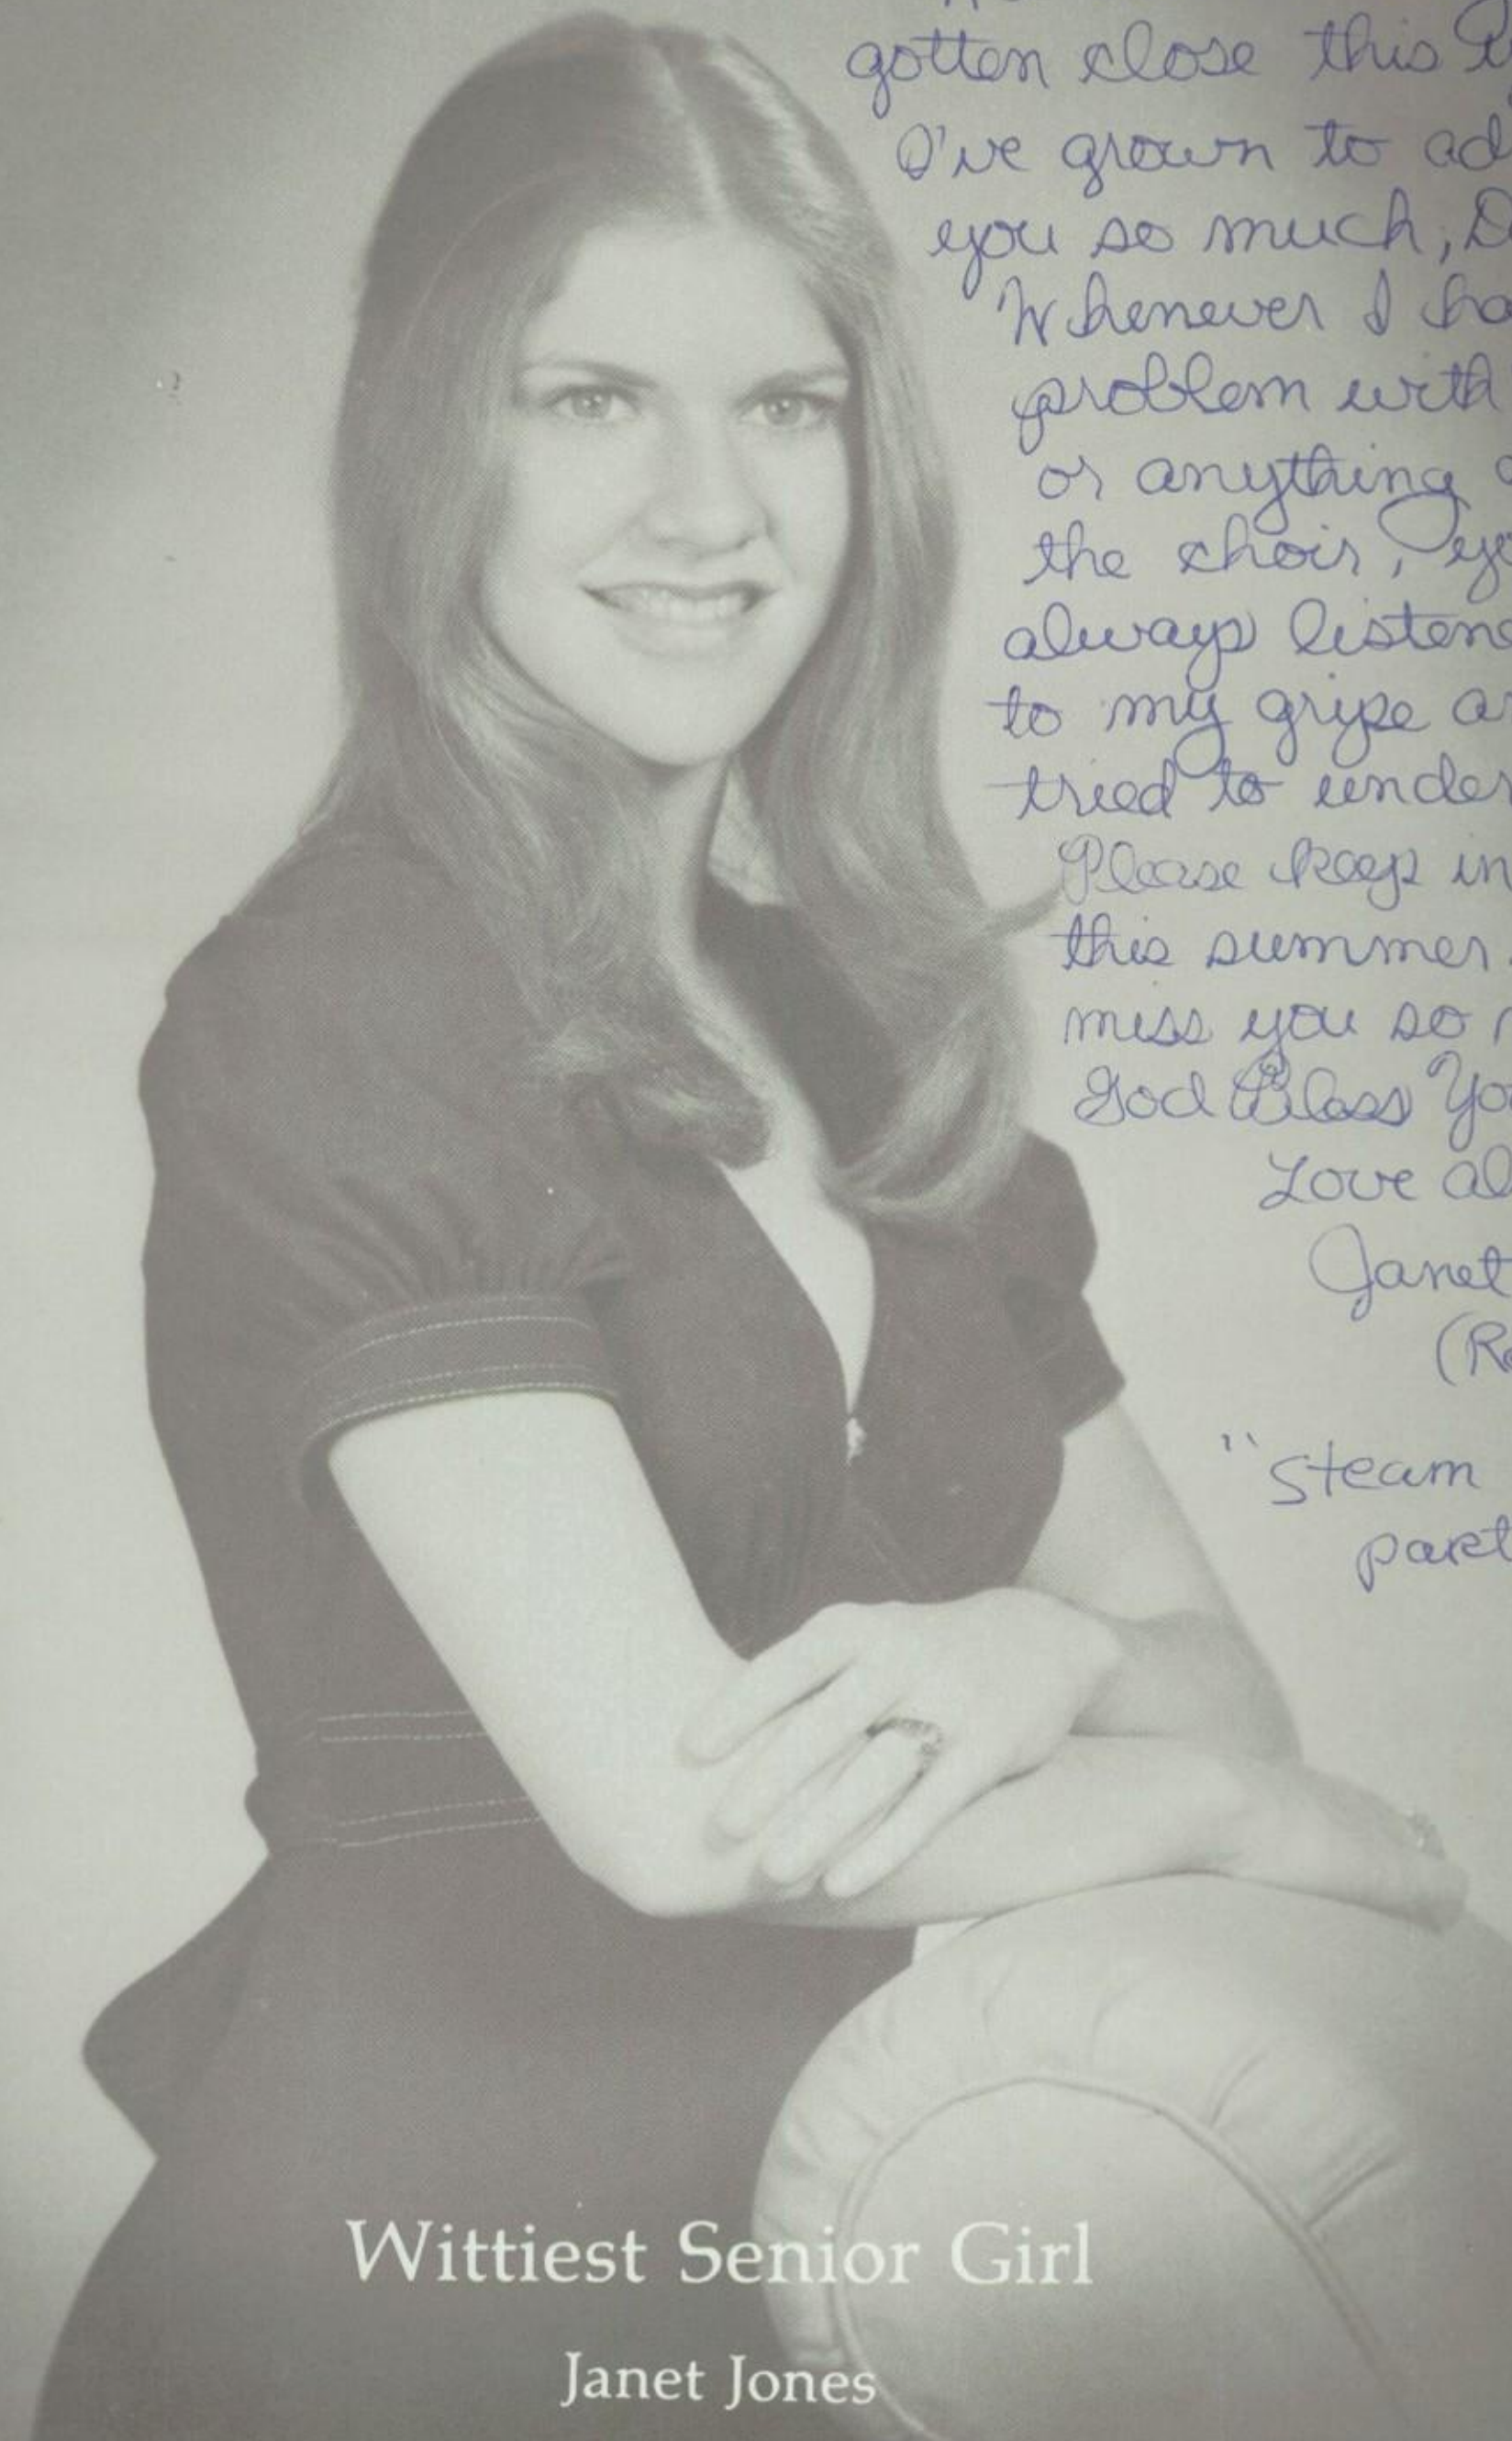 gotten close this
I've grown to ad
you so much, D
Whenever I ha
problem with
or anything
the choir, yo
always listene
to my gripe an
tried to under
Please keep in
this summer.
miss you so
God Bless Yo
Love al
Janet
(Re
"steam
part
Wittiest Senior Girl
Janet Jones